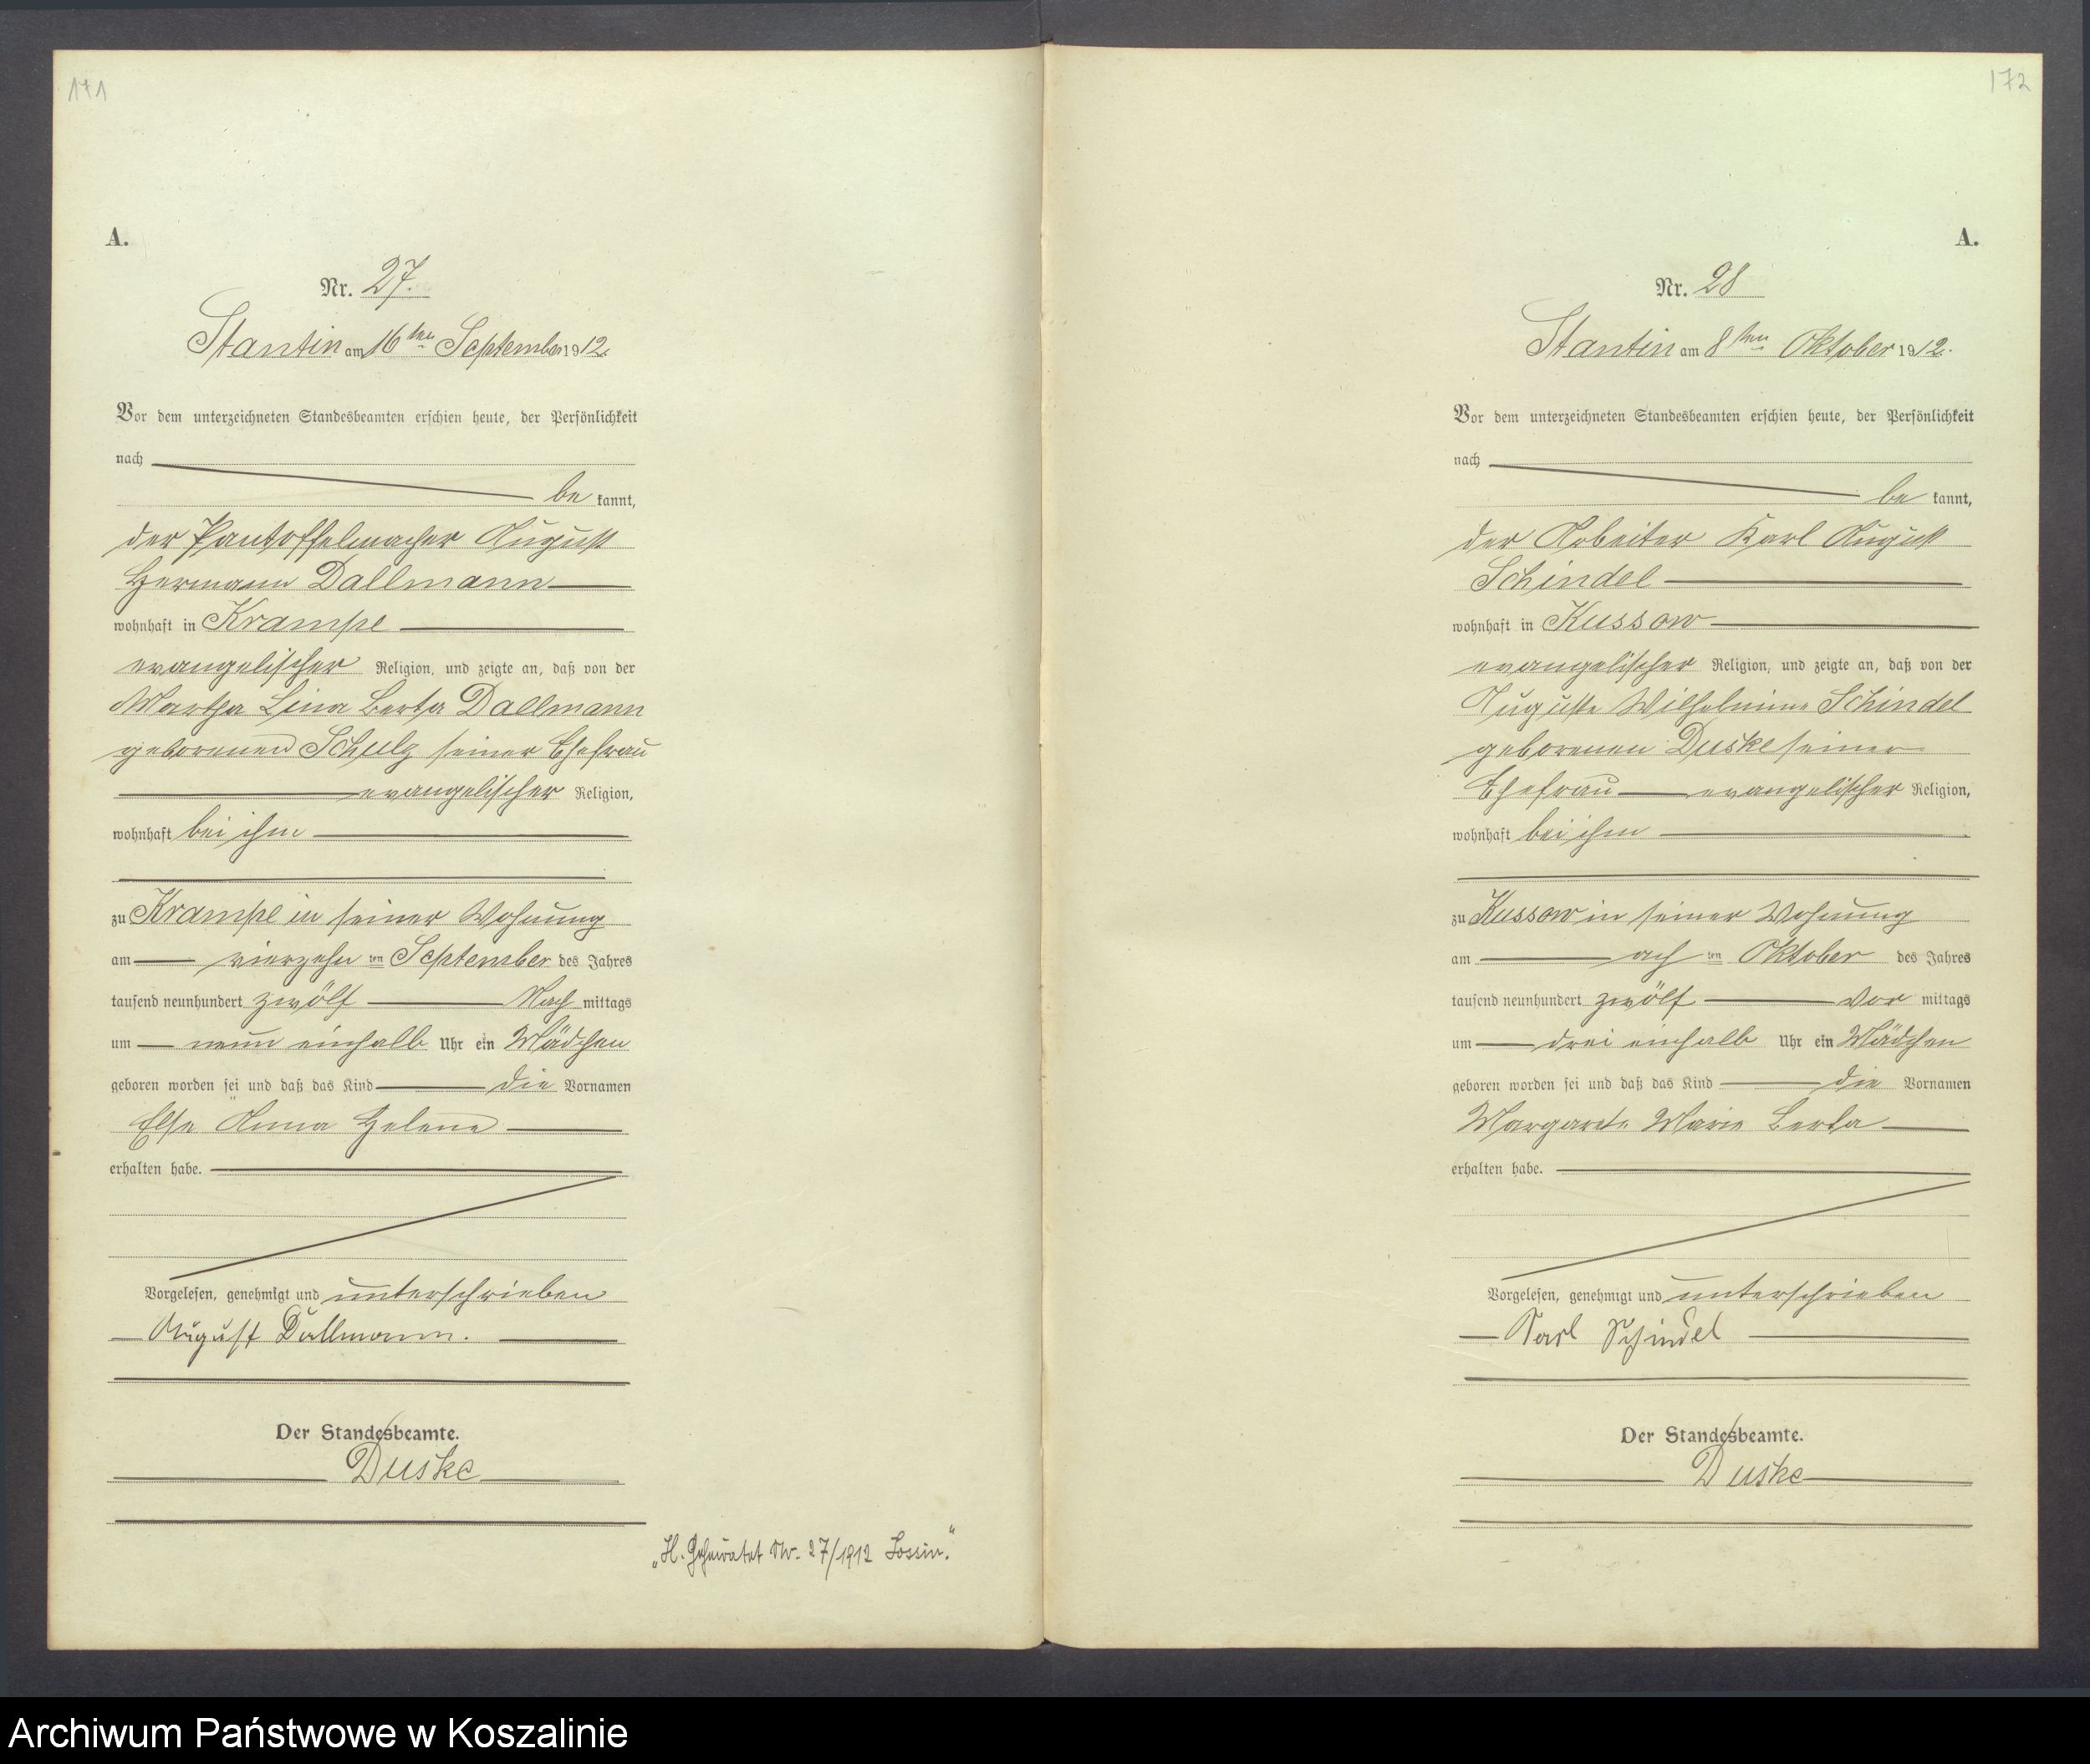 171
A.
Nr. 27.
Stantin am 16ten September 1912.
Vor dem unterzeichneten Standesbeamten erschien heute, der Persönlichkeit
nach
be kannt,
der Pantoffelmacher August
Hermann Dallmann
wohnhaft in Krampe
evangelischer Religion, und zeigte an, daß von der
Martha Lina Berta Dallmann
geborenen Schulz seiner Ehefrau
evangelischer Religion,
wohnhaft bei ihm
zu Krampe in seiner Wohnung
am vierzehn ten September des Jahres
tausend neunhundert zwölf Nach mittags
um neun einhalb Uhr ein Mädchen
geboren worden sei und daß das Kind die Vornamen
Else Anna Helene
erhalten habe.
Vorgelesen, genehmigt und unterschrieben
August Dallmann.
Der Standesbeamte.
Duske
„H. Geheiratet Nr. 27/1912 Lossin."
172
A.
Nr. 28
Stantin am 8ten Oktober 1912.
Vor dem unterzeichneten Standesbeamten erschien heute, der Persönlichkeit
nach
be kannt,
der Arbeiter Karl August
Schindel
wohnhaft in Kussow
evangelischer Religion, und zeigte an, daß von der
Auguste Wilhelmine Schindel
geborenen Duske seiner
Ehefrau evangelischer Religion,
wohnhaft bei ihm
zu Kussow in seiner Wohnung
am ach ten Oktober des Jahres
tausend neunhundert zwölf Vor mittags
um drei einhalb Uhr ein Mädchen
geboren worden sei und daß das Kind die Vornamen
Margarete Marie Berta
erhalten habe.
Vorgelesen, genehmigt und unterschrieben
Karl Schindel
Der Standesbeamte.
Duske
Archiwum Państwowe w Koszalinie